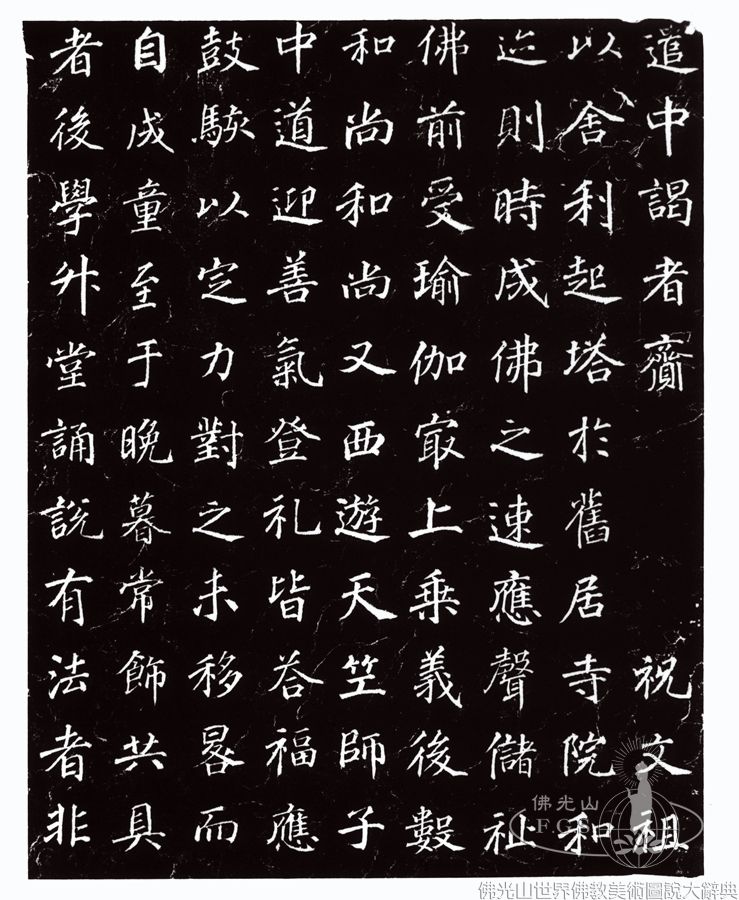 遣中謁者齎 祝文祖
以舍利起塔於舊居寺院和
迹則時成佛之速應聲儲祉
佛前受瑜伽㝡上乗義後數
和尚和尚又西遊天竺師子
中道迎善氣登礼皆荅福應
鼓駭以定力對之未移晷而
自成童至于晚暮常飾共具
者後學升堂誦說有法者非
佛光山
佛光山世界佛教美術圖說大辭典